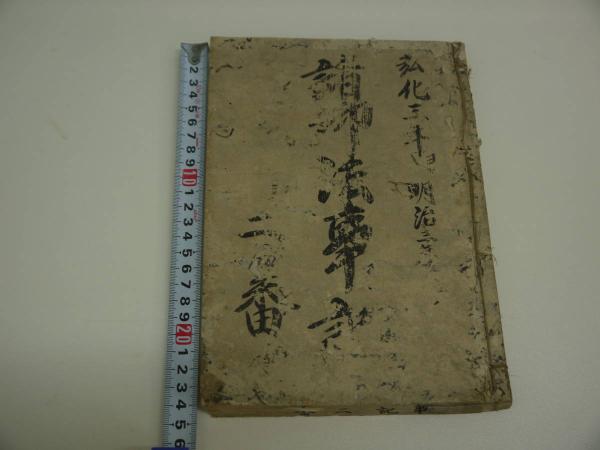 弘化三年 明治三年
諸御法事記
二番
2 3 4 5 6 7 8 9 10 1 2 3 4 5 6 7 8 9 20 1 2 3 4 5 6